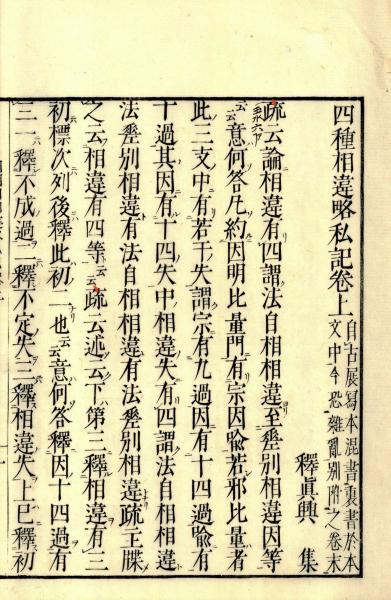 四種相違略私記卷上 自古展寫本混書裏書於本文中今恐雜亂別附之卷末
釋眞興 集
疏云論相違有四謂法自相相違至差別相違因等
云云意何答凡約因明比量門有宗因喩若邪比量者
此三支中有若干失謂宗有九過因有十四過喩有
十過其因有十四失中相違失有四謂法自相相違
法差別相違有法自相相違有法差別相違疏主牒
之云相違有四等云云疏云述云下第三釋相違有三
初標次列後釋此初一也云云意何答釋因十四過有
三一釋不成過二釋不定失三釋相違失上已釋初